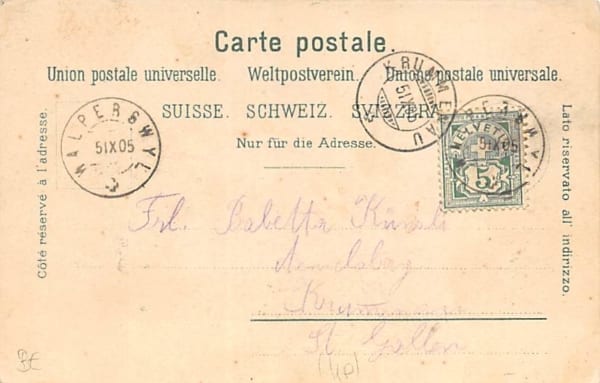 Carte postale.
Union postale universelle. Weltpostverein. Unione postale universale.
SUISSE. SCHWEIZ. SVIZZERA.
Nur für die Adresse.
Côté réservé à l'adresse.
Lato riservato all' indirizzo.
WALPERSWYL
5 IX 05
KRUMMENAU
5 IX 05
HELVETIA
5
IX 05
Frl. Babette Künzli
St Gallen